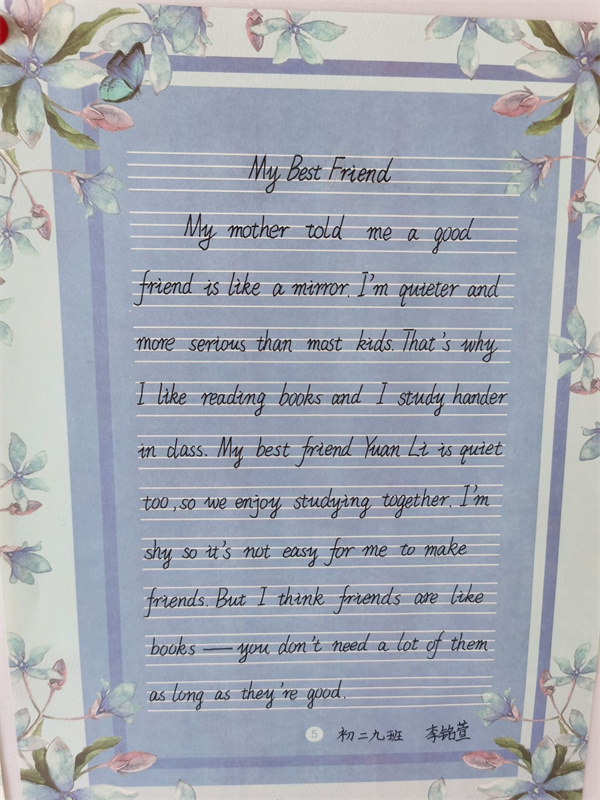 My Best Friend
My mother told me a good
friend is like a mirror. I'm quieter and
more serious than most kids. That's why
I like reading books and I study hander
in class. My best friend Yuan Li is quiet
too, so we enjoy studying together. I'm
shy so it's not easy for me to make
friends. But I think friends are like
books — you don't need a lot of them
as long as they're good.
5 初二九班 李铭萱